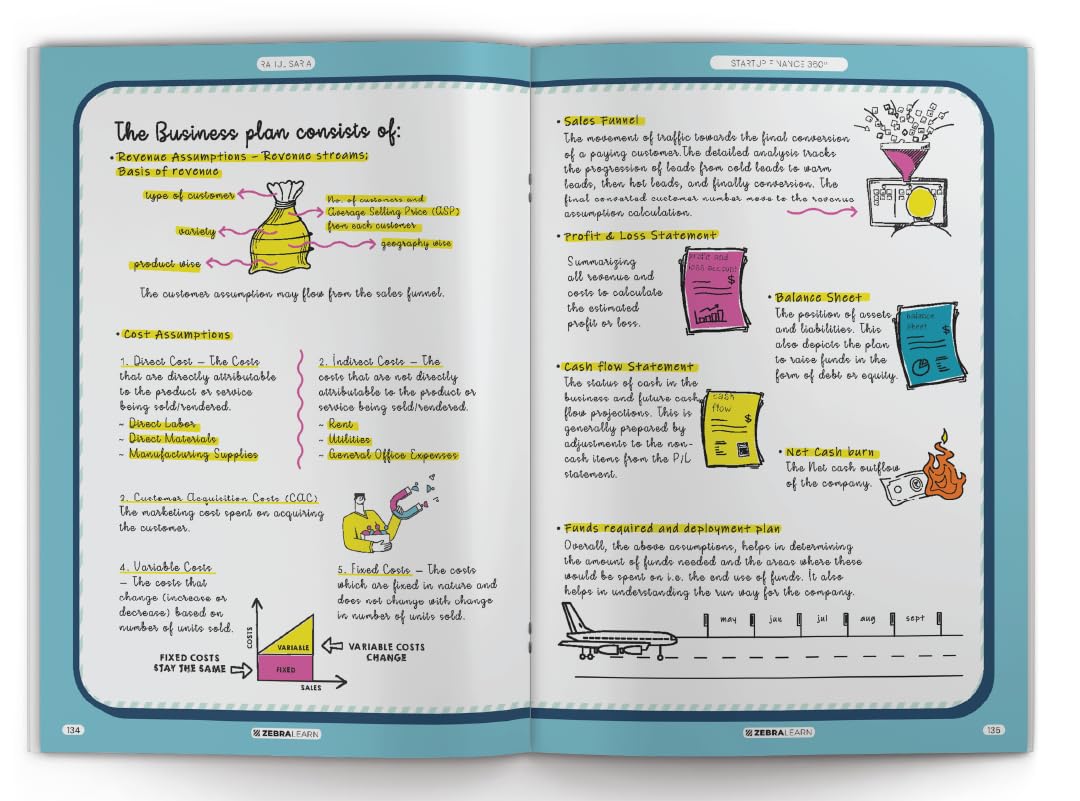 The Business plan consists of:
• Revenue Assumptions – Revenue streams;
Basis of revenue
type of customer
No. of customers and
Average Selling Price (ASP)
from each customer
variety
geography wise
product wise
The customer assumption may flow from the sales funnel.
• Cost Assumptions
1. Direct Cost – The Costs
that are directly attributable
to the product or service
being sold/rendered.
~ Direct Labor
~ Direct Materials
~ Manufacturing Supplies
2. Indirect Costs – The
costs that are not directly
attributable to the product or
service being sold/rendered.
~ Rent
~ Utilities
~ General Office Expenses
3. Customer Acquisition Costs (CAC)
The marketing cost spent on acquiring
the customer.
4. Variable Costs
– The costs that
change (increase or
decrease) based on
number of units sold.
5. Fixed Costs – The costs
which are fixed in nature and
does not change with change
in number of units sold.
COSTS
VARIABLE
FIXED
SALES
VARIABLE COSTS
CHANGE
FIXED COSTS
STAY THE SAME
134
ZEBRALEARN
STARTUP FINANCE 360°
• Sales Funnel
The movement of traffic towards the final conversion
of a paying customer.The detailed analysis tracks
the progression of leads from cold leads to warm
leads, then hot leads, and finally conversion. The
final converted customer number move to the revenue
assumption calculation.
• Profit & Loss Statement
Summarizing
all revenue and
costs to calculate
the estimated
profit or loss.
profit and
loss account
$
• Balance Sheet
The position of assets
and liabilities. This
also depicts the plan
to raise funds in the
form of debt or equity.
balance
sheet
$
• Cash flow Statement
The status of cash in the
business and future cash
flow projections. This is
generally prepared by
adjustments to the non-
cash items from the P/L
statement.
cash
flow
$
• Net Cash burn
The Net cash outflow
of the company.
• Funds required and deployment plan
Overall, the above assumptions, helps in determining
the amount of funds needed and the areas where these
would be spent on i.e. the end use of funds. It also
helps in understanding the run way for the company.
may
jun
jul
aug
sept
ZEBRALEARN
135